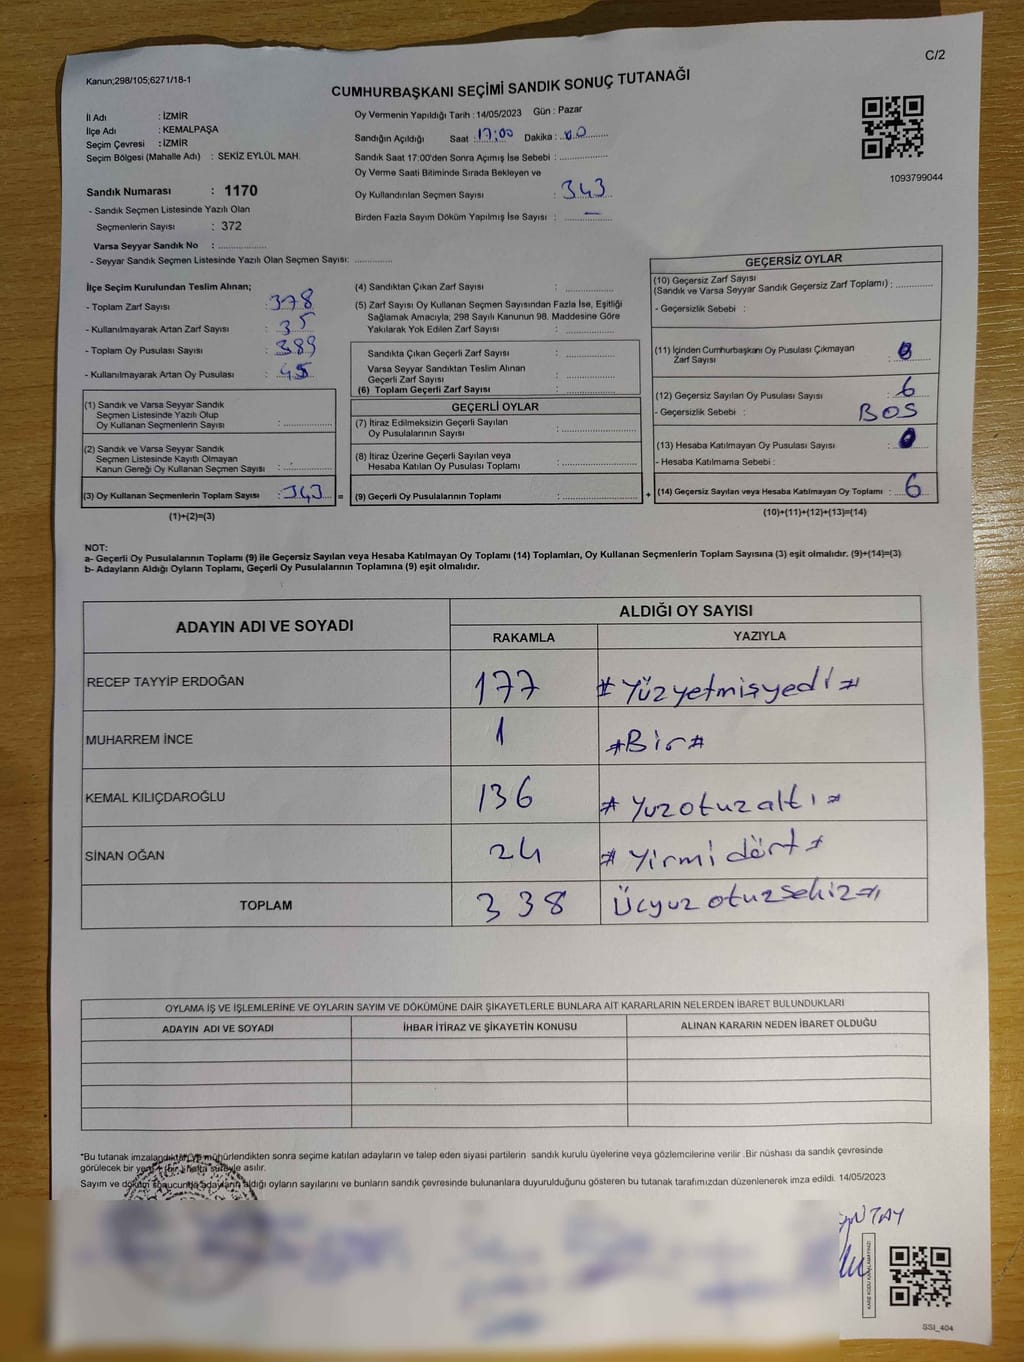 C/2
Kanun;298/105,6271/18-1
CUMHURBAŞKANI SEÇİMİ SANDIK SONUÇ TUTANAĞI
İl Adı : İZMİR
İlçe Adı : KEMALPAŞA
Seçim Çevresi : İZMİR
Seçim Bölgesi (Mahalle Adı) : SEKİZ EYLÜL MAH.
Sandık Numarası : 1170
- Sandık Seçmen Listesinde Yazılı Olan
Seçmenlerin Sayısı : 372
Varsa Seyyar Sandık No : ................
- Seyyar Sandık Seçmen Listesinde Yazılı Olan Seçmen Sayısı: ............
Oy Vermenin Yapıldığı Tarih : 14/05/2023 Gün : Pazar
Sandığın Açıldığı Saat : 17:00 Dakika : 00
Sandık Saat 17:00'den Sonra Açımış İse Sebebi : ................
Oy Verme Saati Bitiminde Sırada Bekleyen ve
Oy Kullandırılan Seçmen Sayısı : 343
Birden Fazla Sayım Döküm Yapılmış İse Sayısı : —
1093799044
İlçe Seçim Kurulundan Teslim Alınan;
- Toplam Zarf Sayısı : 378
- Kullanılmayarak Artan Zarf Sayısı : 35
- Toplam Oy Pusulası Sayısı : 389
- Kullanılmayarak Artan Oy Pusulası : 45
(1) Sandık ve Varsa Seyyar Sandık
Seçmen Listesinde Yazılı Olup
Oy Kullanan Seçmenlerin Sayısı : ............
(2) Sandık ve Varsa Seyyar Sandık
Seçmen Listesinde Kayıtlı Olmayan
Kanun Gereği Oy Kullanan Seçmen Sayısı : ............
(3) Oy Kullanan Seçmenlerin Toplam Sayısı : 343 =
(1)+(2)=(3)
(4) Sandıktan Çıkan Zarf Sayısı : ............
(5) Zarf Sayısı Oy Kullanan Seçmen Sayısından Fazla İse, Eşitliği
Sağlamak Amacıyla; 298 Sayılı Kanunun 98. Maddesine Göre
Yakılarak Yok Edilen Zarf Sayısı : ............
Sandıkta Çıkan Geçerli Zarf Sayısı : ............
Varsa Seyyar Sandıktan Teslim Alınan
Geçerli Zarf Sayısı : ............
(6) Toplam Geçerli Zarf Sayısı : ............
GEÇERLİ OYLAR
(7) İtiraz Edilmeksizin Geçerli Sayılan
Oy Pusulalarının Sayısı : ............
(8) İtiraz Üzerine Geçerli Sayılan veya
Hesaba Katılan Oy Pusulası Toplamı : ............
(9) Geçerli Oy Pusulalarının Toplamı : ............ +
GEÇERSİZ OYLAR
(10) Geçersiz Zarf Sayısı
(Sandık ve Varsa Seyyar Sandık Geçersiz Zarf Toplamı) : ............
- Geçersizlik Sebebi :
(11) İçinden Cumhurbaşkanı Oy Pusulası Çıkmayan
Zarf Sayısı : 0
(12) Geçersiz Sayılan Oy Pusulası Sayısı : 6
- Geçersizlik Sebebi : BOS
(13) Hesaba Katılmayan Oy Pusulası Sayısı : 0
- Hesaba Katılmama Sebebi :
(14) Geçersiz Sayılan veya Hesaba Katılmayan Oy Toplamı : 6
(10)+(11)+(12)+(13)=(14)
NOT:
a- Geçerli Oy Pusulalarının Toplamı (9) ile Geçersiz Sayılan veya Hesaba Katılmayan Oy Toplamı (14) Toplamları, Oy Kullanan Seçmenlerin Toplam Sayısına (3) eşit olmalıdır. (9)+(14)=(3)
b- Adayların Aldığı Oyların Toplamı, Geçerli Oy Pusulalarının Toplamına (9) eşit olmalıdır.
ADAYIN ADI VE SOYADI ALDIĞI OY SAYISI
RAKAMLA YAZIYLA
RECEP TAYYİP ERDOĞAN 177 # Yüzyetmişyedi #
MUHARREM İNCE 1 #Bir#
KEMAL KILIÇDAROĞLU 136 # Yuzotuzaltı #
SİNAN OĞAN 24 # Yirmi dört #
TOPLAM 338 Ücyuz otuzsekiz#
OYLAMA İŞ VE İŞLEMLERİNE VE OYLARIN SAYIM VE DÖKÜMÜNE DAİR ŞİKAYETLERLE BUNLARA AİT KARARLARIN NELERDEN İBARET BULUNDUKLARI
ADAYIN ADI VE SOYADI İHBAR İTİRAZ VE ŞİKAYETİN KONUSU ALINAN KARARIN NEDEN İBARET OLDUĞU
*Bu tutanak imzalandıktan ve mühürlendikten sonra seçime katılan adayların ve talep eden siyasi partilerin sandık kurulu üyelerine veya gözlemcilerine verilir .Bir nüshası da sandık çevresinde
görülecek bir yere 1 (bir ) hafta süreyle asılır.
Sayım ve döküm sonucunda adayların aldığı oyların sayılarını ve bunların sandık çevresinde bulunanlara duyurulduğunu gösteren bu tutanak tarafımızdan düzenlenerek imza edildi. 14/05/2023
KARE KODU KARALAMAYINIZ!
SSI_404